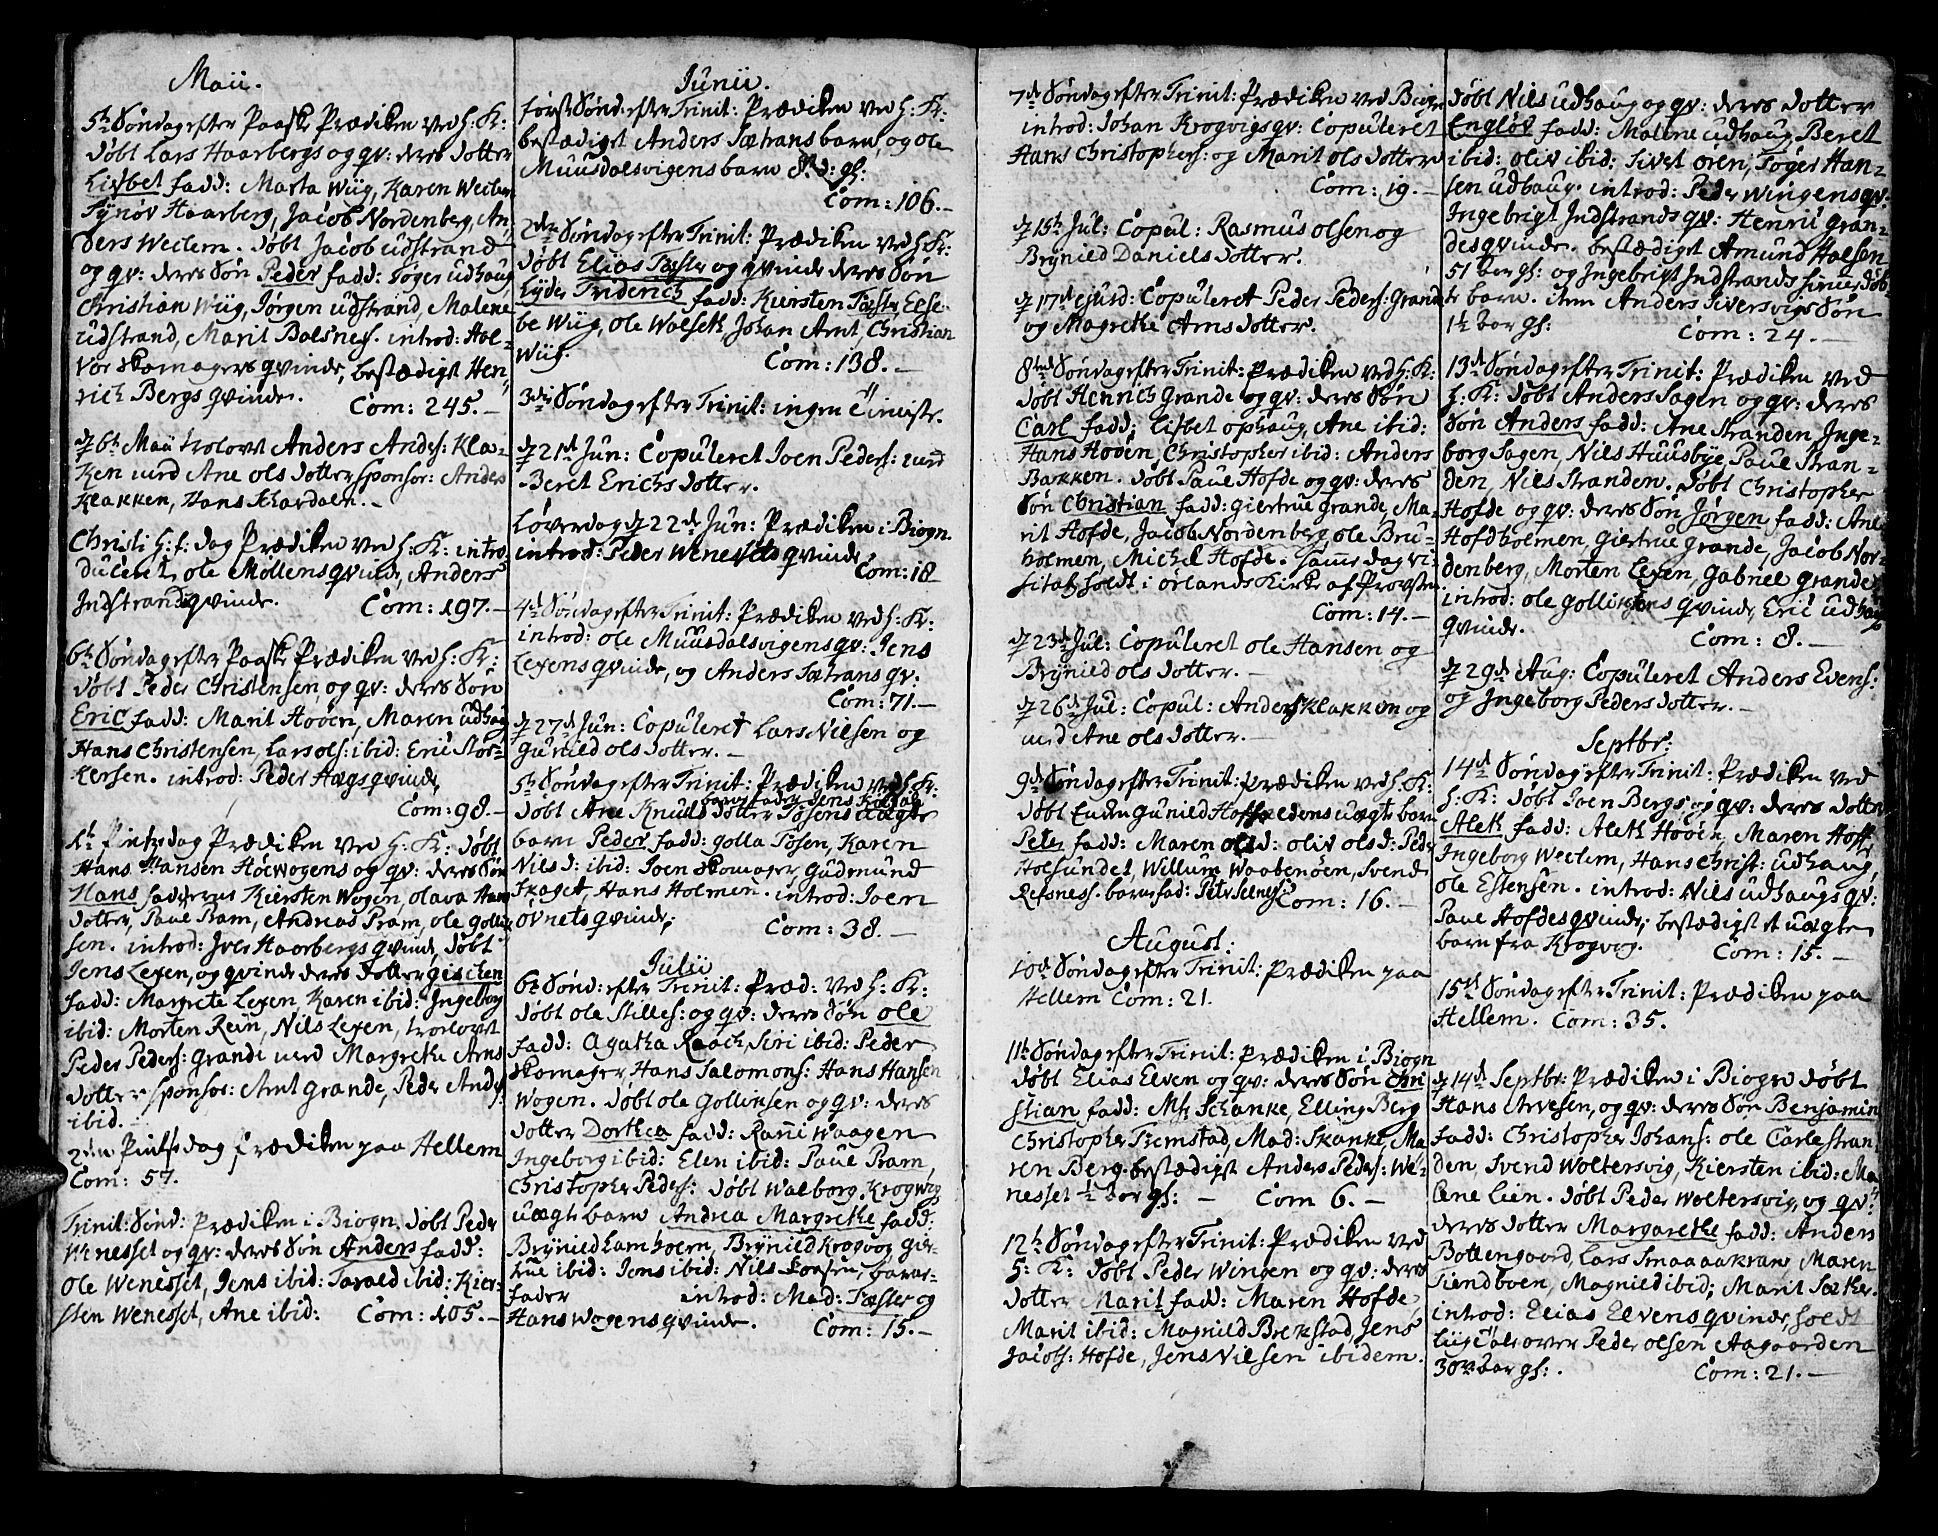 Maii.
5te Søndag efter Paaske Prædiken ved H: K:
døbt Lars Haarbergs og qv: deres dotter
Lisbet fadd: Marta Wiig, Karen Weclem
Synøv Haarberg, Jacob Nordenberg, An-
ders Weclem. døbt Jacob udstrand
og qv: deres Søn Peder fadd: Töger udhaug
Christian Wiig, Jørgen udstrand, Malene
udstrand, Marit Balsnes. introd: Hal-
vor Skomagers qvinde, bestædiget Hen-
rich Bergs qvinde.
Com: 245.-
d 6te Maii trolovet Anders Anders: Klak-
ken med Ane ols dotter sponsor: Anders
Klakken, Hans
Christi H: f: dag Prædiken ved H: K: intro
ducent ole Möllens qvinde, Anders
Indstrands qvinde. Com: 197.-
6te Søndag efter Paaske Prædiken ved H: K:
døbt Peder Christensen, og qv: deres Søn
Eric fadd: Marit Hoöen, Maren udhaug
Hans Christensen, Lars ols: ibid: Eric Stor-
kersen. introd: Peder Hægs qvinde
Com: 98.-
1te Pintzdag Prædiken ved H: K: døbt
Hans Hansen Höewogens og qv: deres Søn
Hans fadderne Kiersten Wogen, olava Hans
dotter, Paul Pram, Andreas Pram, ole Gollin
sen. introd: Iver Haarbergs qvinde, døbt
Jens Lexen, og qvinde deres dotter Gischen
fadd: Margrete Lexen, Karen ibid: Ingeborg
ibid: Morten Rein, Nils Lexen, trolovet
Peder Peders: Grande med Margrethe Arns
dotter sponsor: Arnt Grande, Peder Anders
ibid.-
2den Pintzdag Prædiken paa Hellem
Com: 57.
Trinit: Sönd: Prædiken i Biogn, døbt Peder
Wenesset og qv: deres Søn Anders fadd:
Ole Wenesset, Jens ibid: Tarald ibid: Kier-
sten Wenesset, Ane ibid: Com: 105.-
Junii.
først Sønd: efter Trinit: Prædiken ved H: K:
bestædiget Anders Sætrans barn, og ole
Muusdalsvigens barn 8 d: gl:
Com: 106.-
2den Søndag efter Trinit: Prædiken ved H: K:
døbt Elias Tæster og qvinde deres Søn
Lyder Friderich fadd: Kiersten Tæster, Else-
be Wiig, ole Wolseth, Johan Arnt, Christian
Wiig. Com: 138.-
3die Søndag efter Trinit: ingen Ministr.
d 21de Jun: Copuleret Joen Peders: med
Beret Erichs dotter.
Løverdag d 22de Jun: Prædiken i Biogn.
introd: Peder Wenesets qvinde
Com: 18
4de Søndag efter Trinit: Prædiken ved H: K:
introd: ole Muusdalsvigens qv: Jens
Lexens qvinde, og Anders Sætrans qv:
Com: 71.-
d 27de Jun: Copuleret Lars Nilsen og
Gunild ols dotter.-
5te Søndag efter Trinit: Prædiken ved H: K:
barne fader Jens
døbt Ane Knuds dotter Tösens uægte
barn Peder fadd: Golla Tösen, Karen
Nils d: ibid: Joen Skomager, Gudmund
Skaget, Hans Holmen. introd: Joen
övnets qvinde,
Com: 38.-
Julii
6te Sønd: efter Trinit: Præd: ved H: K:
døbt ole Stilles: og qv: deres Søn ole
fadd: Agatha Raach, Siri ibid: Peder
Skomager, Hans Salomons: Hans Hansen
Wogen. døbt ole Gollinsen og qv: deres
dotter Dorthea fadd: Ranni Waagen
Ingeborg ibid: Elen ibid: Paul Pram,
Christopher Peders: døbt Walborg Krogwig
uægte barn Andrea Margrethe fadd:
Brynild Lamhoem, Brynild Krogvog, Gier-
true ibid: Jens ibid: Nils Koesen, barne-
fader introd: Mad: Tæster og
Hans Wogens qvinde. Com: 15.-
7de Søndag efter Trinit: Prædiken ved Biogn
introd: Johan Krogvigs qv: Copuleret
Hans Christophers: og Marit ols dotter.
Com: 19.-
d 15te Jul: Copul: Rasmus olsen og
Brynild Daniels dotter.
d 17de ejusd: Copuleret Peder Peders: Grande
og Magrethe Arns dotter.
8tende Søndag efter Trinit: Prædiken ved H: K:
døbt Henrich Grande og qv: deres Søn
Carl fadd: Lisbet ophaug, Ane ibid:
Hans Hoven, Christopher ibid: Anders
Bakken. døbt Paul Hofde og qv: deres
Søn Christian fadd: Giertrue Grande, Ma-
rit Hofde, Jacob Nordenberg, ole Bru-
holmen, Michel Hofde. Samme dag vi-
sitatz holdt i örlands Kirke af Provsten
Com: 14.-
d 23de Jul: Copuleret ole Hansen og
Brynild ols dotter.-
d 26de Jul: Copul: Anders Klakken og
med Ane ols dotter.-
9de Søndag efter Trinit: Prædiken ved H: K:
døbt Enken Gunild uægte barn
Peter fadd: Maren ols d: oliv ols d: Peder
Holsundet, Willum Waabenöen, Svend
Refsnes. barnefad: Petr Selnes Com: 16.-
August:
10de Søndag efter Trinit: Prædiken paa
Hellem Com: 21.
11te Søndag efter Trinit: Prædiken i Biogn
døbt Elias Elven og qv: deres Søn Chri
stian fadd: Mr Schanke, Elling Berg
Christopher Fremstad, Mad: Skanke, Ma-
ren Berg. bestædiget Anders Peders: We-
nesset 1/2 aar gl: - Com 6.-
12te Søndag efter Trinit: Prædiken ved
H: K: døbt Peder Winsen og qv: deres
dotter Marit fadd: Maren Hofde,
Marit ibid: Magnild Brekstad, Jens
Jacobs: Hofde, Jens Nilsen ibidem.
døbt Nils udhaug og qv: deres dotter
Engløv fadd: Malene udhaug, Beret
ibid: oliv ibid: Sivet ören, Töger Han-
sen udhaug. introd: Peder Wingens qv:
Ingebrigt Indstrands qv: Henric Gran-
des qvinde. bestædiget Amund Halsen
51 aar gl: og Ingebrigt Indstrands
barn. item Anders Siversvigs Søn
1 1/2 aar gl: Com: 24.-
13de Søndag efter Trinit: Prædiken ved
H: K: døbt Anders Sagen og qv: deres
Søn Anders fadd: Ane Stranden, Inge-
borg Sagen, Nils Huusbye, Paul Stran-
den, Nils Stranden. døbt Christopher
Hofde og qv: deres Søn Jørgen fadd: Ane
Hofdholmen, Giertrue Grande, Jacob Nor-
denberg, Morten Lexen, Gabriel Grande,
introd: ole Gollinsens qvinde, Eric udhaugs
qvinde. Com: 8.-
d 29de Aug: Copuleret Anders Evens:
og Ingeborg Peders dotter.-
Septbr:
14de Søndag efter Trinit: Prædiken ved
H: K: døbt Joen Bergs og qv: deres dotter
Aleth fadd: Aleth Hoöen, Maren Hoff
Ingeborg Weclem, Hans Christ: udhaug
ole Estensen. introd: Nils udhaugs qv:
Paul Hofdes qvinde, bestædiget et uægte
barn fra Krogvog. Com: 15.-
15de Søndag efter Trinit: Prædiken paa
Hellem. Com: 35.
d 14de Septbr: Prædiken i Biogn døbt
Hans Arvesen, og qv: deres Søn Benjamin
fadd: Christopher Johans: ole Carlestran
den, Svend Woltersvig, Kiersten ibid: Ma
lene Lien. døbt Peder Woltersvig, og qv:
deres dotter Margarethe fadd: Anders
Bottengaard, Lars Smaaaakran, Maren
Tiendboen, Magnild ibid; Marit Sæther.
introd: Elias Elvens qvinde, holdt
Liig Tale over Peder olsen Aagaarden
30 aar gl:. Com: 21.-